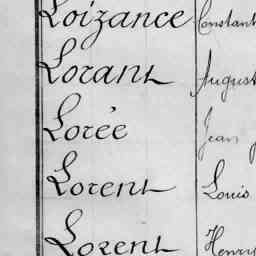 Loizance Constant
Lorant August
Lorée Jean
Lorent Louis
Lorent Henry